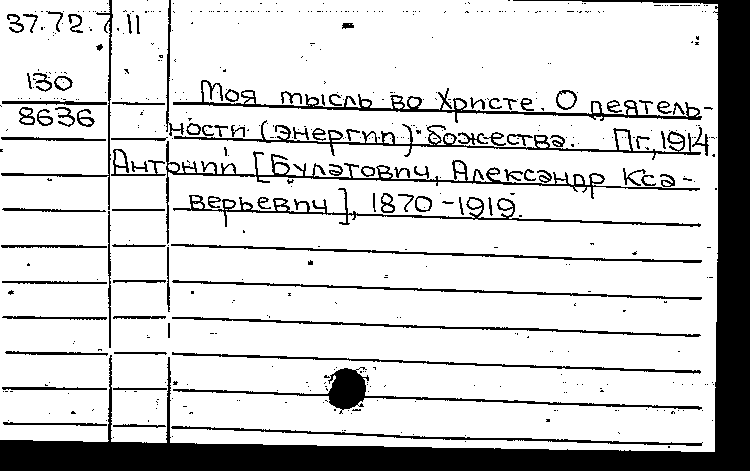 37.72.7.11
130
8636
Моя мысль во Христе. О деятель-
ности (энергии) божества. Пг., 1914.
Антоний [Булатович, Александр Кса-
верьевич], 1870-1919.